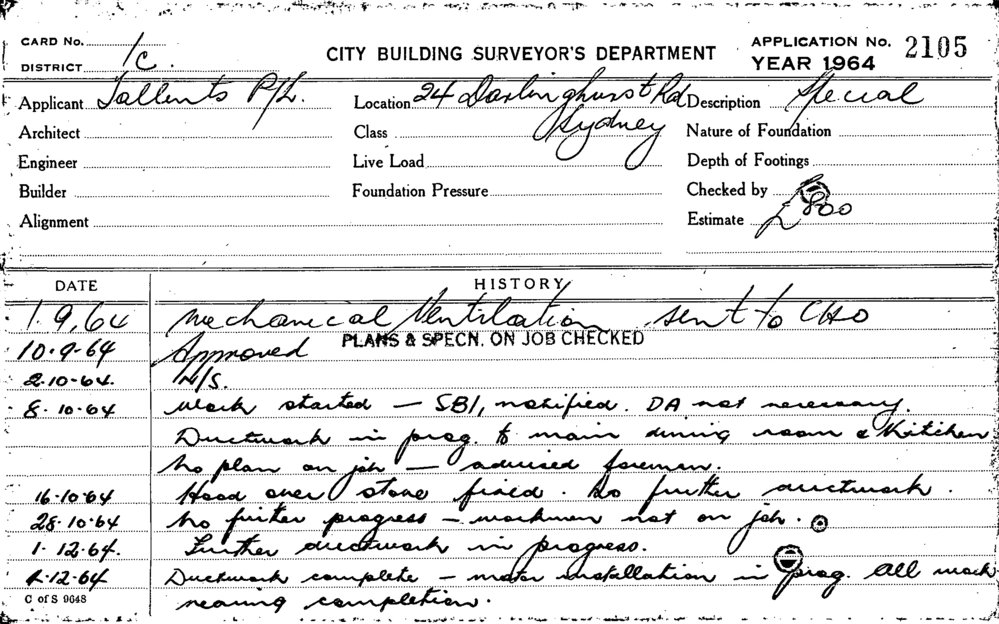 CARD No. 1c
DISTRICT
CITY BUILDING SURVEYOR'S DEPARTMENT
APPLICATION No. 2105
YEAR 1964
Applicant Tallents P/L. Location 24 Darlinghurst Rd Sydney Description Special
Architect Class Nature of Foundation
Engineer Live Load Depth of Footings
Builder Foundation Pressure Checked by
Alignment Estimate £800
DATE HISTORY
1.9.64 Mechanical Ventilation sent to CHO
10.9.64 Approved PLANS & SPECN. ON JOB CHECKED
2.10.64. N/S.
8.10.64 Work started — SBI, notified. DA not necessary.
Ductwork in prog. to main dining room & Kitchen
No plan on job — advised foreman.
16.10.64 Hood over stove fixed. No further ductwork.
28.10.64 No further progress — workmen not on job.
1.12.64. Further ductwork in progress.
.12.64 Ductwork complete — motor installation in prog. All work
nearing completion.
C of S 9648